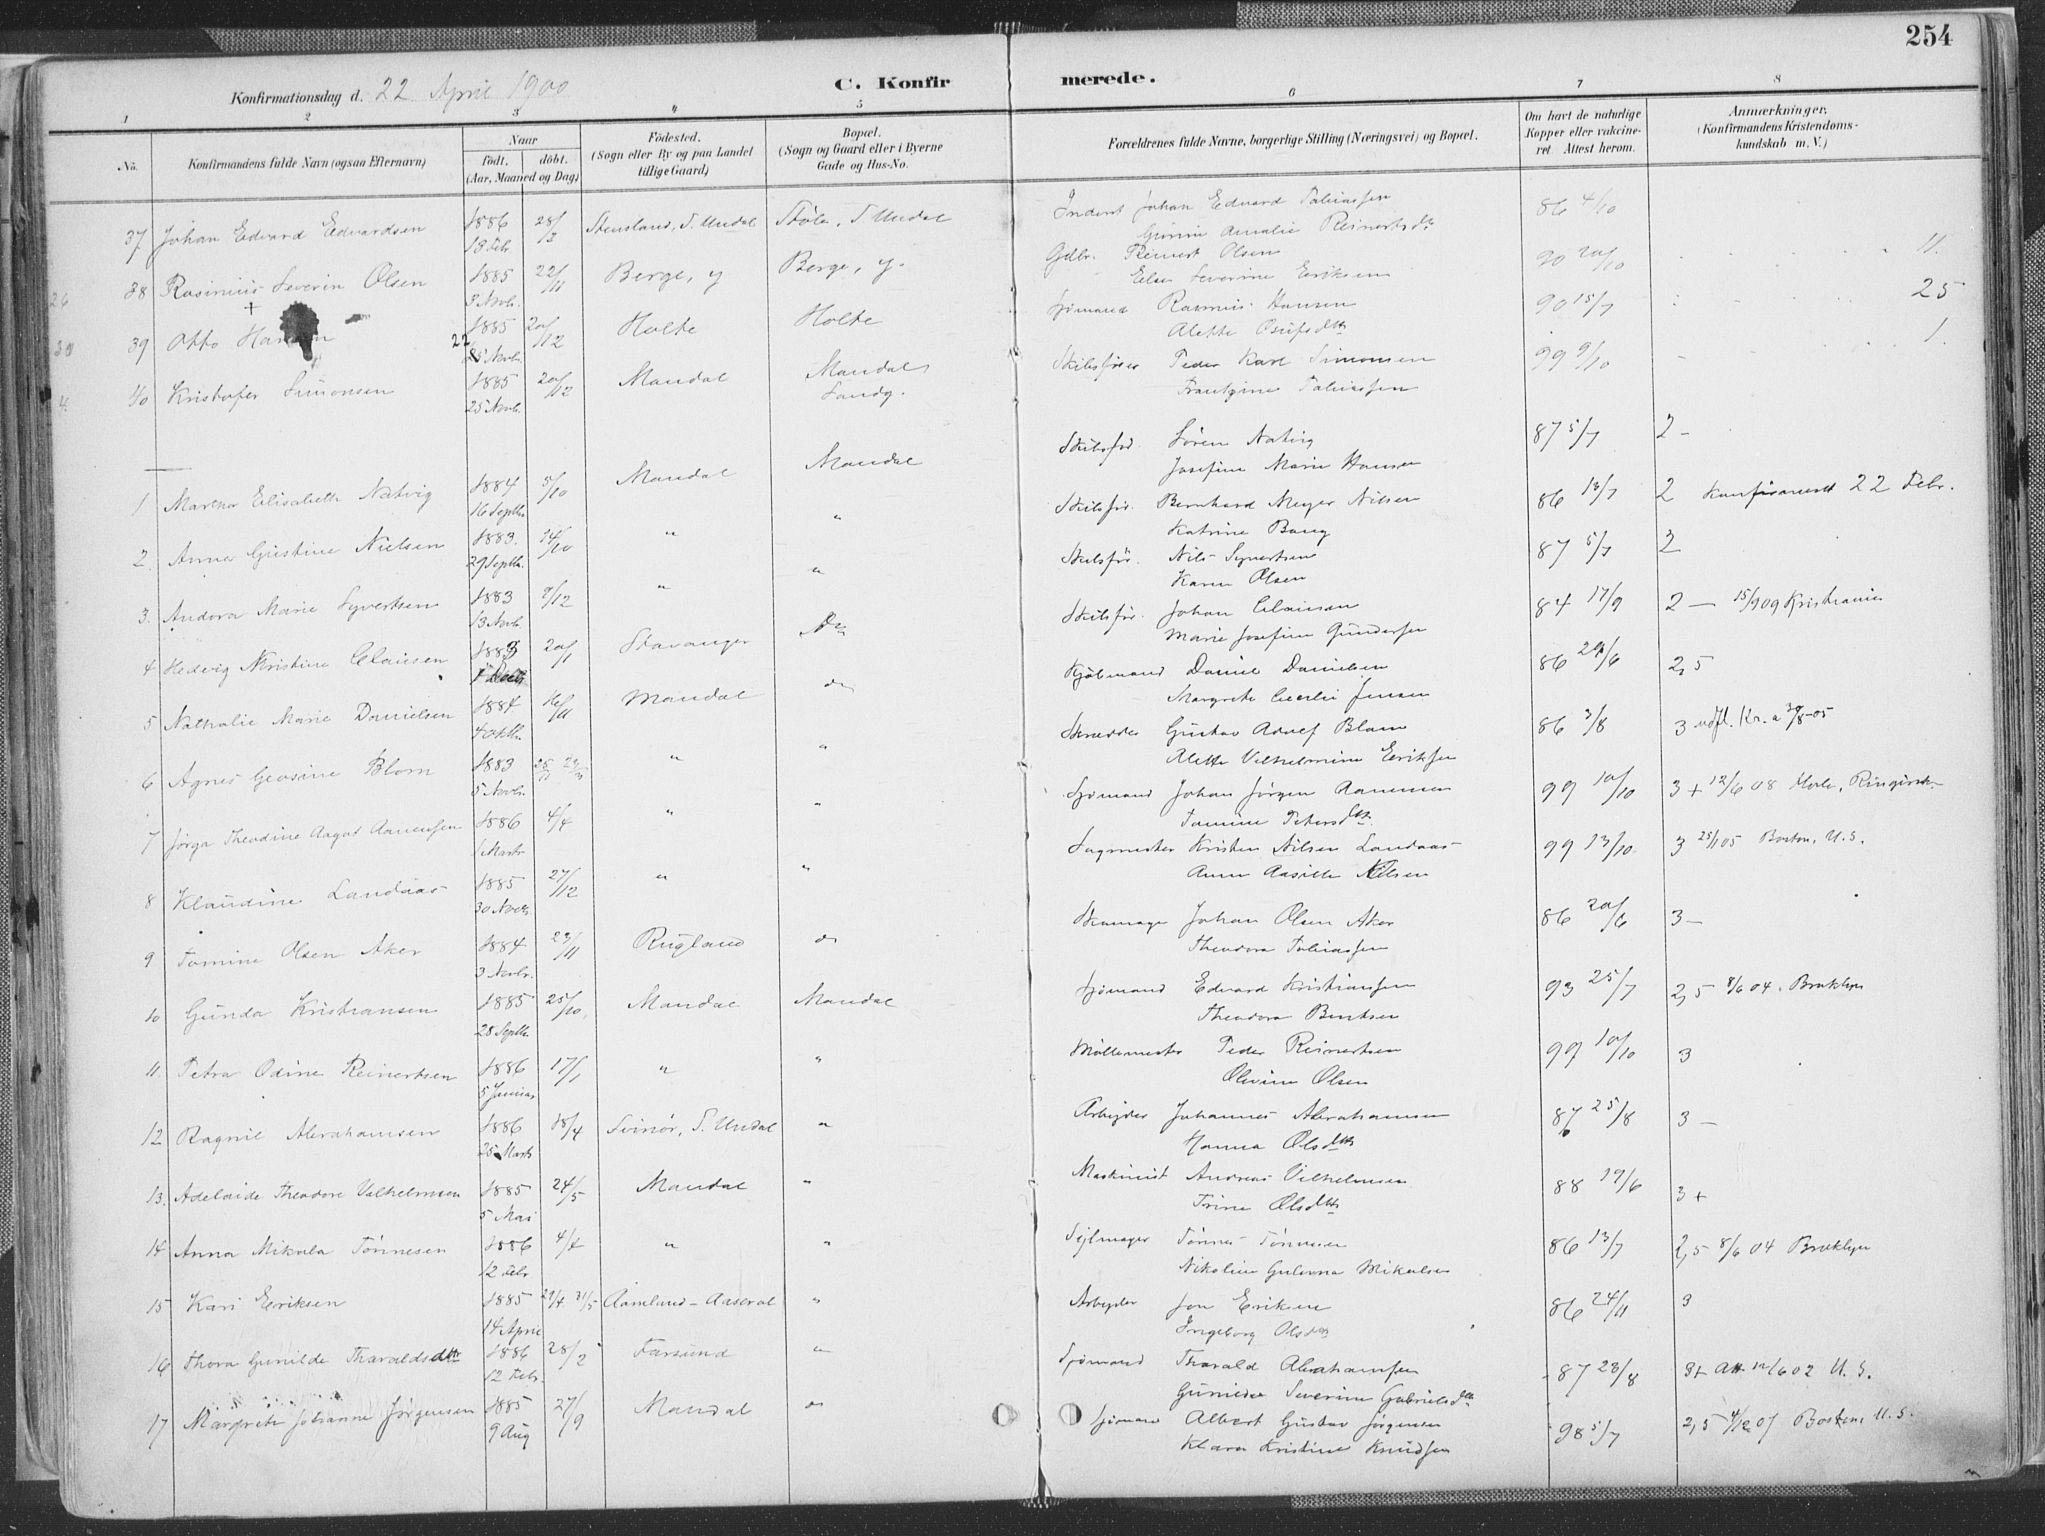 254
C. Konfirmerede.
Konfirmationsdag d. 22 April 1900
1 2 3 4 5 6 7 8
No.
Konfirmandens fulde Navn (ogsaa Efternavn)
Naar
födt. döbt.
(Aar, Maaned og Dag)
Födested.
(Sogn eller By og paa Landet
tillige Gaard)
Bopæl.
(Sogn og Gaard eller i Byerne
Gade og Hus-No.
Forældrenes fulde Navne, borgerlige Stilling (Næringsvei) og Bopæl.
Om havt de naturlige
Kopper eller vakcine-
ret. Attest herom.
Anmærkninger,
(Konfirmandens Kristendoms-
kundskab m. V.)
37 Johan Edvard Edvardsen 1886 28/3 Stensland, S. Undal Støle, S Undal Johan Edvard Tobiassen 86 4/10
18 Febr. Reinertsdtr
38 Rasinius Severin Olsen 1885 22/11 Berge, y Berge, y. Gdbr. Reinert Olsen 90 20/10 11.
3 Novbr. Else Severine Eriksen
39 Otto Hansen 1885 20/12 Holte Holte Sjømand Rasmus Hansen 90 15/7 25
22 Novbr. Alette Osufsdtr
40 Kristofer Simonsen 1885 20/12 Mandal Mandal Skibsfører Peder Karl Simonsen 99 9/10 1.
25 Novbr. Sandg. Tobiassen
1 Martha Elisabeth Natvig 1884 5/10 Mandal Mandal Skibsfør. Søren Natvig 87 5/7 2 -
16 Septbr. Josefine Marie Hansen
2. Anna Gustine Nielsen 1883. 14/10 " " Skibsfør. Bernhard Meyer Nilsen 86 13/7 2 Konfirmeret 22 Febr.
29 Septbr. Katrine Bang
3. Andora Marie Syvertsen 1883 9/12 " " Skibsfør. Nils Syvertsen 87 5/7 2
13 Novb. Karen Olsen
4 Hedvig Kristine Clausen 1883 20/1 Stavanger Do Skibsfør. Johan Clausen 84 17/9 2 - 15/9 09 Kristiania
Marie Josefine Gundersen
5 Nathalie Marie Danielsen 1884 16/11 Mandal do Kjøbmand Daniel Danielsen 86 29/6 2,5
4 Oktbr. Margrete Cecilie Jensen
6 Agnes Geosine Blom 1883 " " Skrædder Gustav Adolf Blom 86 3/8 3 udfl. Kr.a 30/8-05
5 Novbr. Alette Vilhelmine Eriksen
7 Jørga Theodine Aagot Aanensen 1886 4/4 " " Sjømand Johan Jørgen Aanensen 99 10/10 3 + 12/6 08
1 Marts Tomine Petersdtr.
8 Klaudine Landaas 1885 27/12 " " Sagmester Kristen Nilsen Landaas 99 13/10 3 25/1 05 Boston, U.S.
30 Novbr. Anne Aasille Nilsen
9 Tomine Olsen Aker 1884 23/11 Rugland do Skomager Johan Olsen Aker 86 20/6 3 -
3 Novbr. Theodora Tobiassen
10 Gunda Kristiansen 1885 25/10 Mandal Mandal Sjømand Edvard Kristiansen 93 25/7 2,5 8/6 04. Bruklyn
28 Septbr. Theodora Bentsen
11. Petra Odine Reinertsen 1886 17/1 " " Møllemester Peder Reinertsen 99 10/10 3
5 Januar Olevine Olsen
12 Ragnil Abrahamsen 1886 18/4 Svinør, S. Undal " Arbejder Johannes Abrahamsen 87 25/8 3 -
25 Marts Hanna Olsdtr
13. Adelaide Theodore Vilhelmsen 1885 24/5 Mandal " Maskinist Andreas Vilhelmsen 88 19/6 3 +
5 Mai Trine Olsdtr
14 Anna Mikala Tønnesen 1886 4/4 " " Sejlmager Tønnes Tønnesen 86 13/7 2,5 8/6 04 Bruklyn
12 Febr Nikoline Gulovna Mikalsen
15 Kari Eriksen 1885 31/5 Aamland - Aaseral " Arbejder Jon Eriksen 86 24/11 3
14 April Ingeborg Olsdtr
16 Thora Gunilde Tharaldsdtr 1886 28/2 Farsund " Sjømand Tharald Abrahamsen 87 28/8 3+ Att 12/6 02 U.S.
12 Febr. Gunilde Severine Gabrielsdtr
17 Margrete Johanne Jørgensen 1885 27/9 Mandal do Sjømand Albert Gustav Jørgensen 98 5/7 2,5 4/12 07 Boston, U.S.
9 Aug Klara Kristine Knudsen